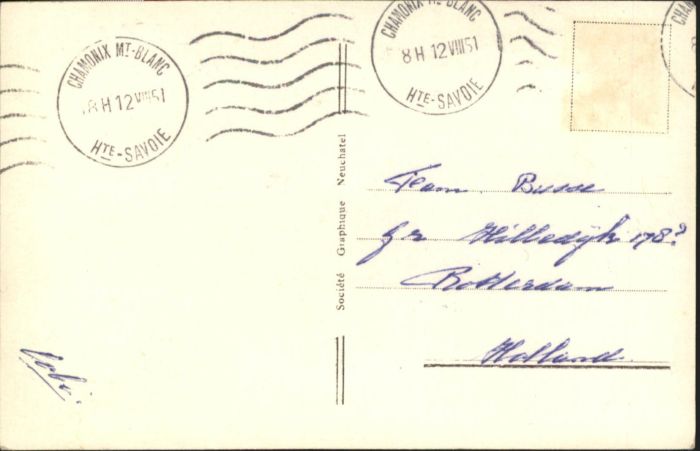 CHAMONIX MT-BLANC
8H 12 VIII 51
HTE-SAVOIE
CHAMONIX MT BLANC
8H 12 VIII 51
HTE-SAVOIE
Société Graphique Neuchatel
Fam. Busse
Gr Hilledijk 178?
Rotterdam
Holland.